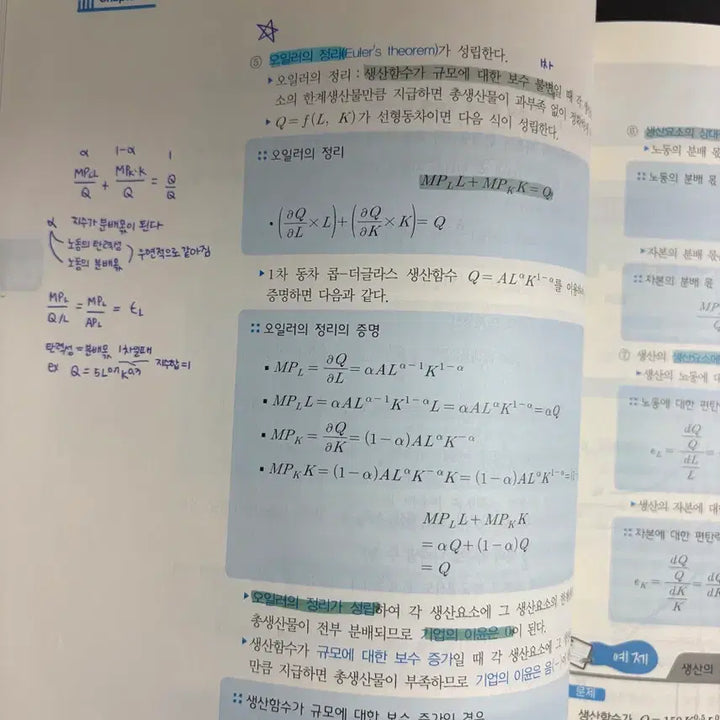 ⑤ 오일러의 정리(Euler's theorem)가 성립한다.
▸오일러의 정리 : 생산함수가 규모에 대한 보수 불변일 때 각
소의 한계생산물만큼 지급하면 총생산물이 과부족 없이
▸Q=f(L, K)가 선형동차이면 다음 식이 성립한다.
:: 오일러의 정리
MP_L L+MP_K K=Q
• (∂Q/∂L×L)+(∂Q/∂K×K)=Q
▸1차 동차 콥-더글라스 생산함수 Q=AL^αK^{1-α}를
증명하면 다음과 같다.
:: 오일러의 정리의 증명
▪ MP_L=∂Q/∂L=αAL^{α-1}K^{1-α}
▪ MP_L L=αAL^{α-1}K^{1-α}L=αAL^αK^{1-α}=αQ
▪ MP_K=∂Q/∂K=(1-α)AL^αK^{-α}
▪ MP_K K=(1-α)AL^αK^{-α}K=(1-α)AL^αK^{1-α}
MP_L L+MP_K K
=αQ+(1-α)Q
=Q
▸오일러의 정리가 성립하여 각 생산요소에 그 생산요소의
총생산물이 전부 분배되므로 기업의 이윤은 0이 된다.
▸생산함수가 규모에 대한 보수 증가일 때 각 생산요소에 그
만큼 지급하면 총생산물이 부족하므로 기업의 이윤은 음(-)
:: 생산함수가 규모에 대한 보수 증가인 경우
α 1-α 1
MP_L·L/Q + MP_K·K/Q = Q/Q
α 지수가 분배몫이 된다
노동의 탄력성
노동의 분배몫
우연적으로 같아짐
MP_L/Q/L = MP_L/AP_L = ε_L
탄력성=분배몫 1차일때 지수합=1
ex Q = 5L^0.7K^0.3
⑥ 생산요소의 상대
▸노동의 분배 몫
:: 노동의 분배 몫
▸자본의 분배 몫
:: 자본의 분배 몫
MP
⑦ 생산의 생산요소에
▸생산의 노동에 대
:: 노동에 대한 편탄
e_L = dQ/Q / dL/L =
▸생산의 자본에 대
:: 자본에 대한 편탄력
e_K = dQ/Q / dK/K =
예제
생산의
문제
생산함수가